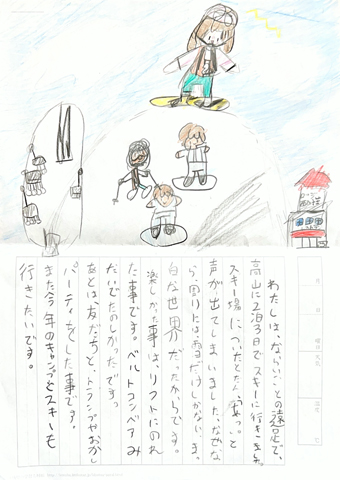 わたしは、ならいごとの遠足で、
高山に2泊3日でスキーに行きました。
スキー場についたとたん「やっと
声が出てしまいました。なぜな
ら、周りには雪だけしかない、ま、
白な世界だったからです。
楽しかった事は、リフトにのれ
た事です。ベルトコンベアみ
たいでたのしかったです。
あとは、友だちと、トランプやおかし
パーティをした事です。
また今年のキャンプとスキーも
行きたいです。